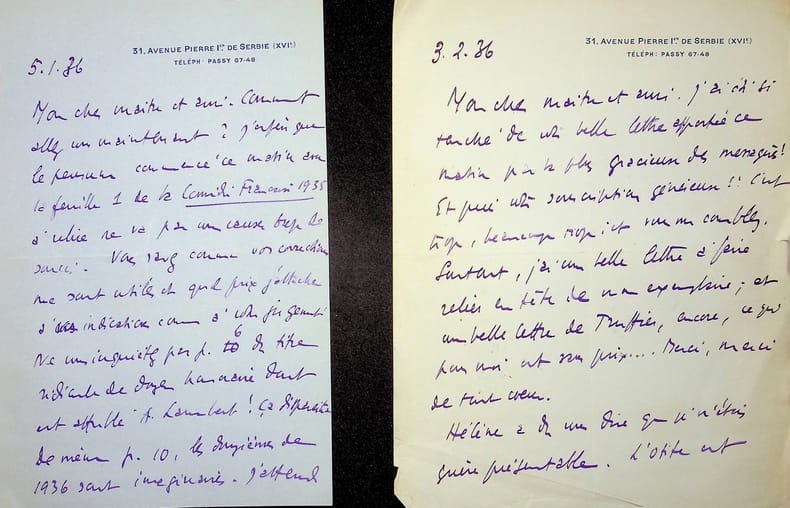 31, AVENUE PIERRE Iᵉʳ DE SERBIE (XVIᵉ)
TÉLÉPH: PASSY 67-48
5.1.36
Mon cher maître et ami. Comment
allez vous maintenant ? J'espère que
le pensum commencé ce matin avec
la feuille 1 de la Comédie Française 1935
à relire ne va pas vous causer trop de
soucis. Vous savez comme vos corrections
me sont utiles et quel prix j'attache
à vos indications comme à votre jugement.
Ne vous inquiétez pas p. 6 du titre
ridicule de doyen honoraire dont
est affublé A. Lambert ! Ça disparaîtra
De même p. 10, les douzièmes de
1936 sont imaginaires. J'attends
31, AVENUE PIERRE Iᵉʳ DE SERBIE (XVIᵉ)
TÉLÉPH: PASSY 67-48
3.2.36
Mon cher maître et ami. J'ai été si
touché de votre belle lettre apportée ce
matin par la plus gracieuse des messagères !
Et puis votre souscription généreuse !! C'est
trop, beaucoup trop; et vous me comblez.
Surtout, j'ai une belle lettre à faire
relier en tête de mon exemplaire; et
une belle lettre de Truffier, encore, ce qui
pour moi est sans prix... Merci, merci
de tout cœur.
Hélène a dû vous dire que je n'étais
guère présentable. L'otite est